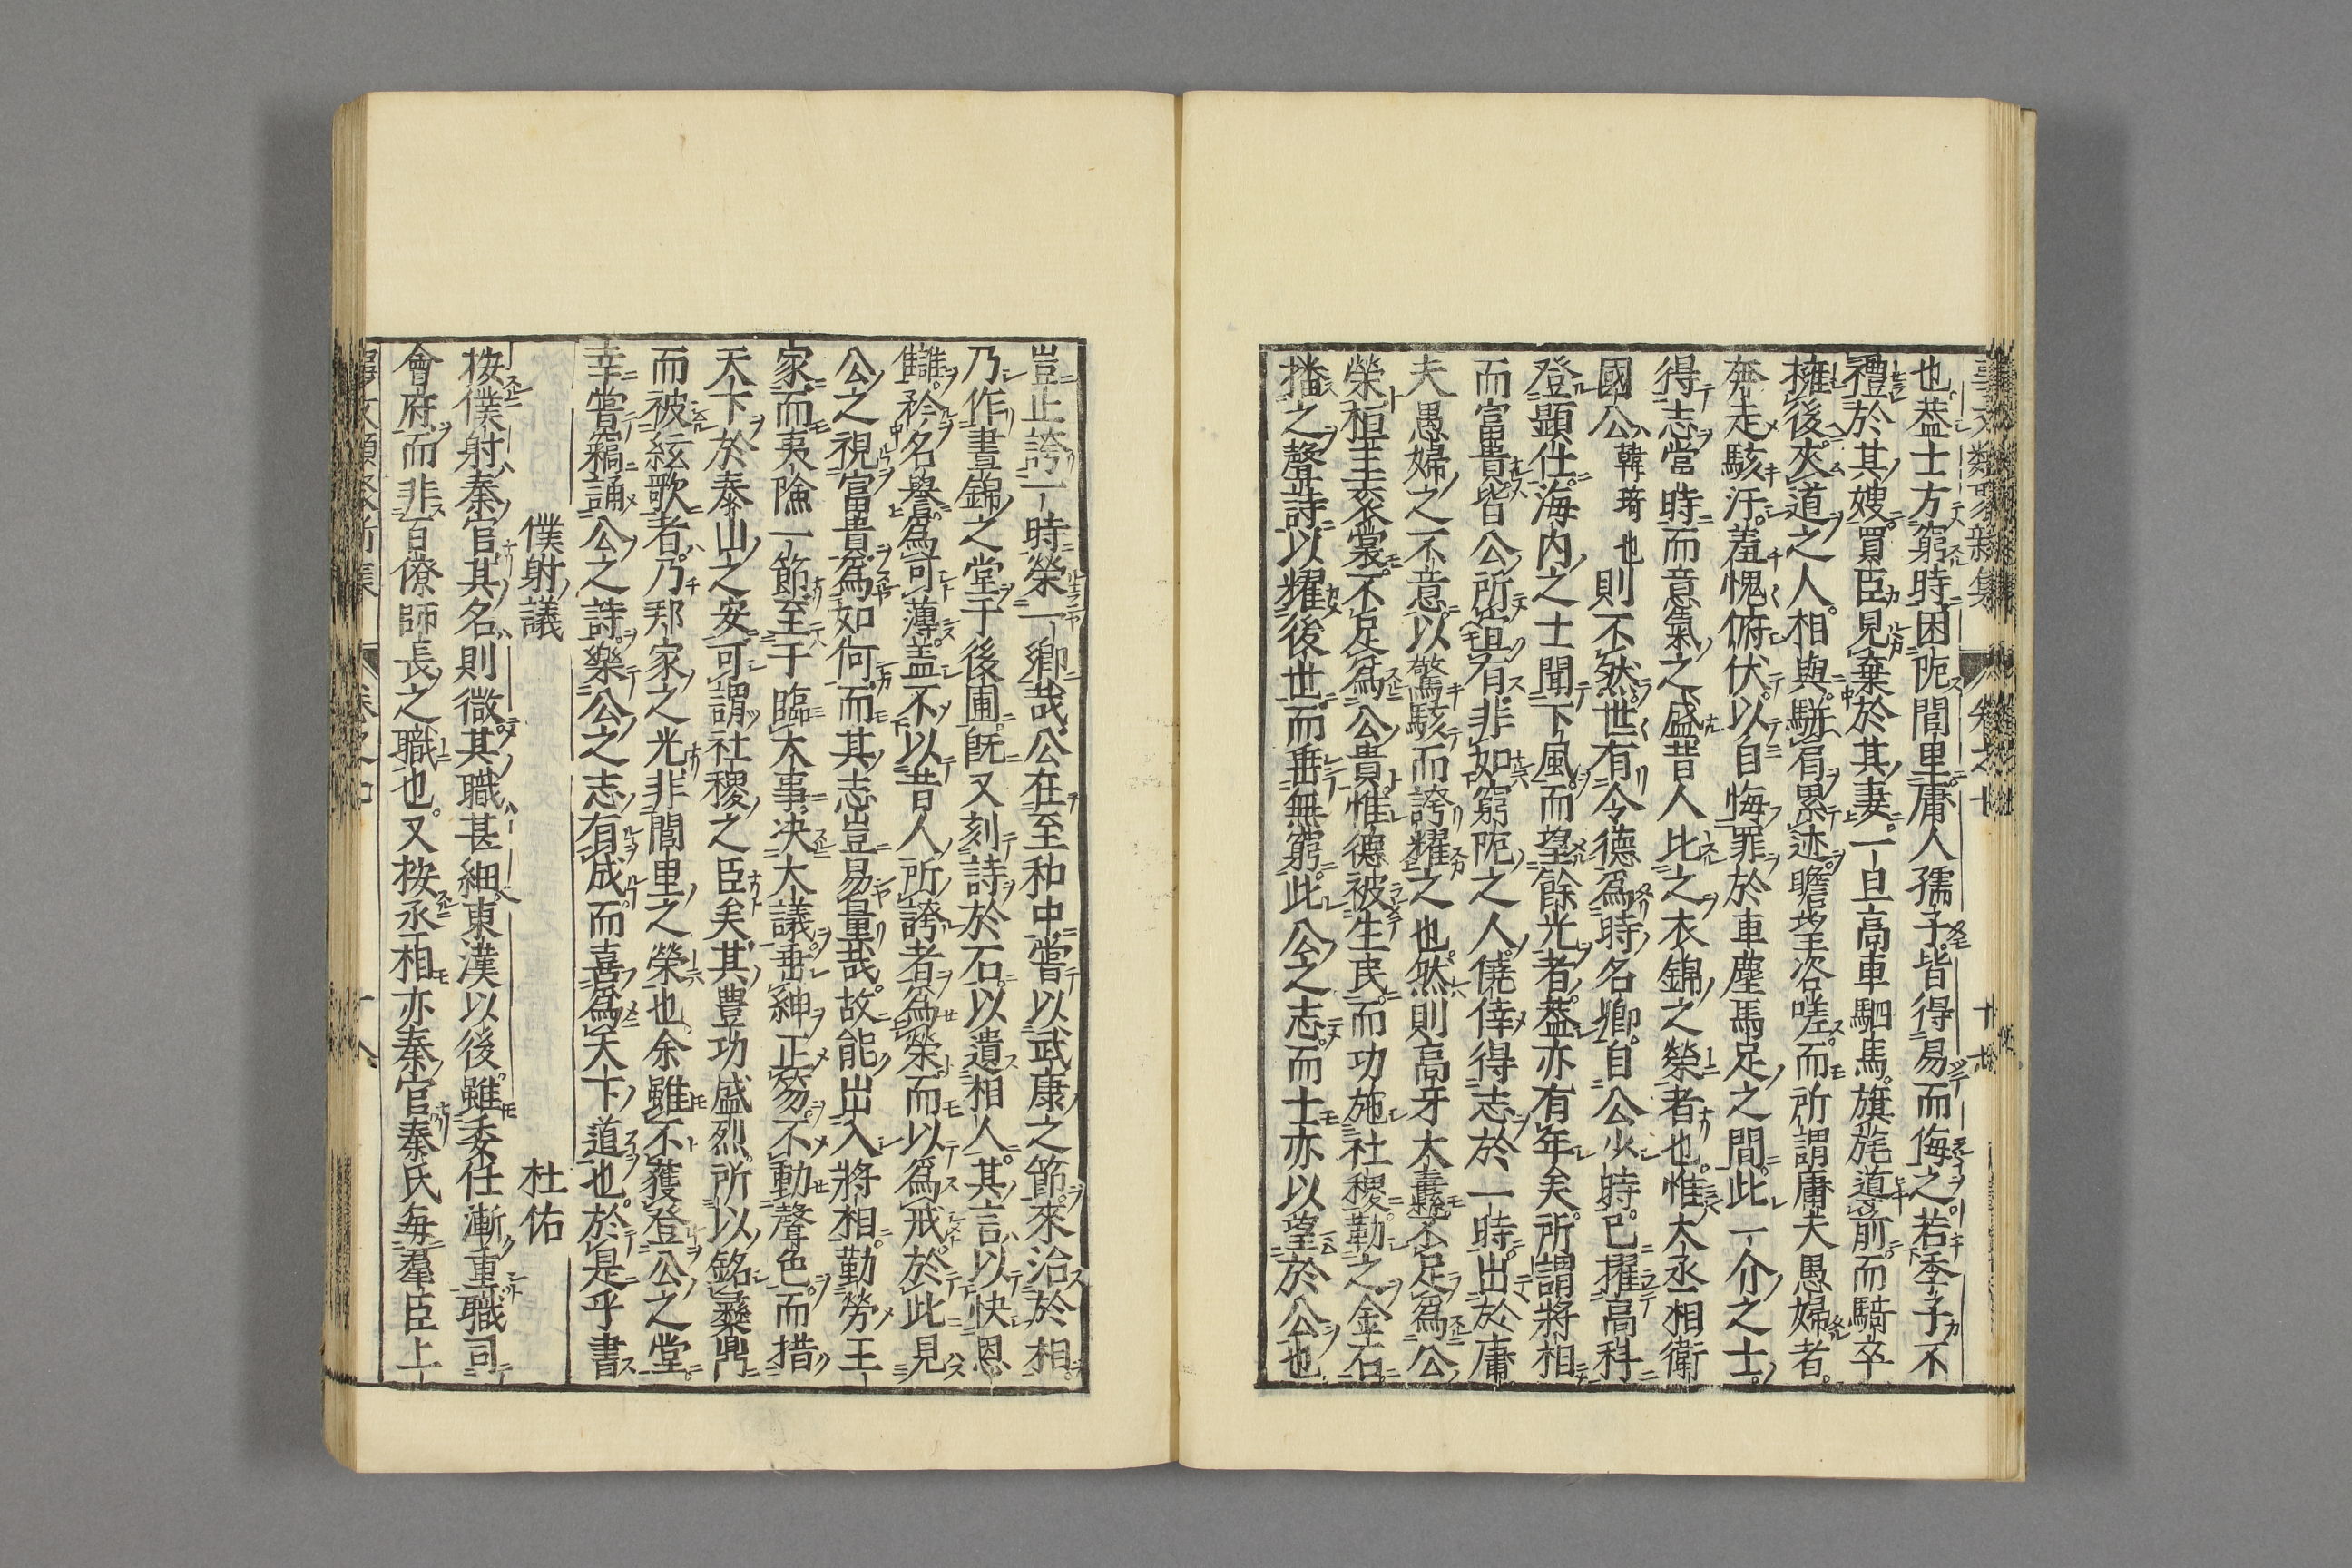 也蓋士方窮時困阨閭里庸人孺子皆得易而侮之若季子不
禮於其嫂買臣見棄於其妻一旦高車駟馬旗旄道前而騎卒
擁後夾道之人相與駢肩累迹瞻望咨嗟而所謂庸夫愚婦者
奔走駭汗羞愧俯伏以自悔罪於車塵馬足之間此一介之士
得志當時而意氣之盛昔人比之衣錦之榮者也惟大丞相衛
國公韓琦也則不然世有令德爲時名卿自公少時已擢高科
登顯仕海内之士聞下風而望餘光者蓋亦有年矣所謂將相
而富貴皆公所冝有非如窮阨之人僥倖得志於一時出於庸
夫愚婦之不意以驚駭而誇耀之也然則高牙大纛不足爲公
榮桓圭衮裳不足爲公貴惟德被生民而功施社稷勒之金石
播之聲詩以耀後世而垂無窮此公之志而士亦以望於公也
豈止誇一時榮一鄉哉公在至和中嘗以武康之節來治於相
乃作晝錦之堂于後圃既又刻詩於石以遺相人其言以快恩
讎矜名譽爲可薄盖不以昔人所誇者爲榮而以爲戒於此見
公之視富貴爲如何而其志豈易量哉故能出入將相勤勞王
家而夷險一節至于臨大事决大議垂紳正笏不動聲色而措
天下於泰山之安可謂社稷之臣矣其豊功盛烈所以銘彝鼎
而被絃歌者乃邦家之光非閭里之榮也余雖不獲登公之堂
幸嘗竊誦公之詩樂公之志有成而喜爲天下道也於是乎書
僕射議 杜佑
按僕射秦官其名則微其職甚細東漢以後雖委任漸重職司
會府而非百僚師長之職也又按丞相亦秦官秦氏每羣臣上